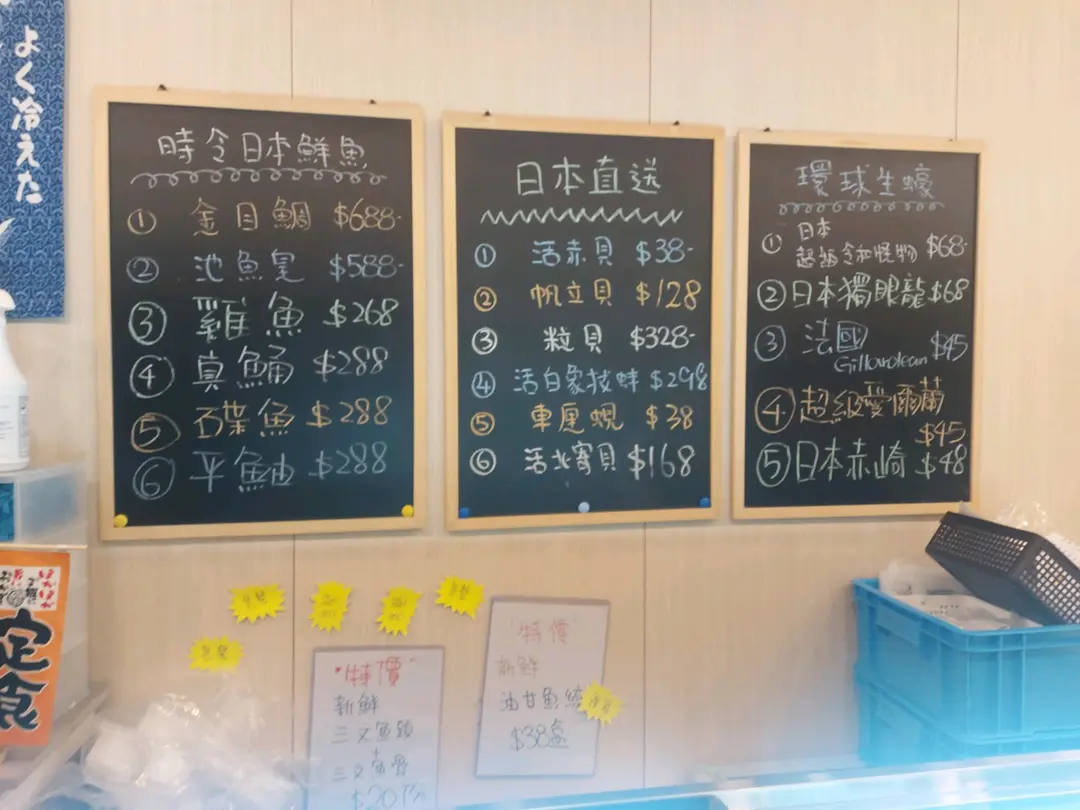 よく冷えた
時令日本鮮魚
① 金目鯛 $688-
② 池魚皇 $588-
③ 雞魚 $268
④ 真鯒 $288
⑤ 石碟魚 $288
⑥ 平鮋 $288
日本直送
① 活赤貝 $38-
② 帆立貝 $128
③ 粒貝 $328-
④ 活白象拔蚌 $298
⑤ 車厘蜆 $38
⑥ 活北寄貝 $168
環球生蠔
① 日本
超級令和怪物 $68-
② 日本獨眼龍 $68
③ 法國
Gillardeau $45
④ 超級愛爾蘭
$45
⑤ 日本赤崎 $48
定食
"特價"
新鮮
三文魚頭
三文魚骨
$20
"特價"
新鮮
油甘魚
$38